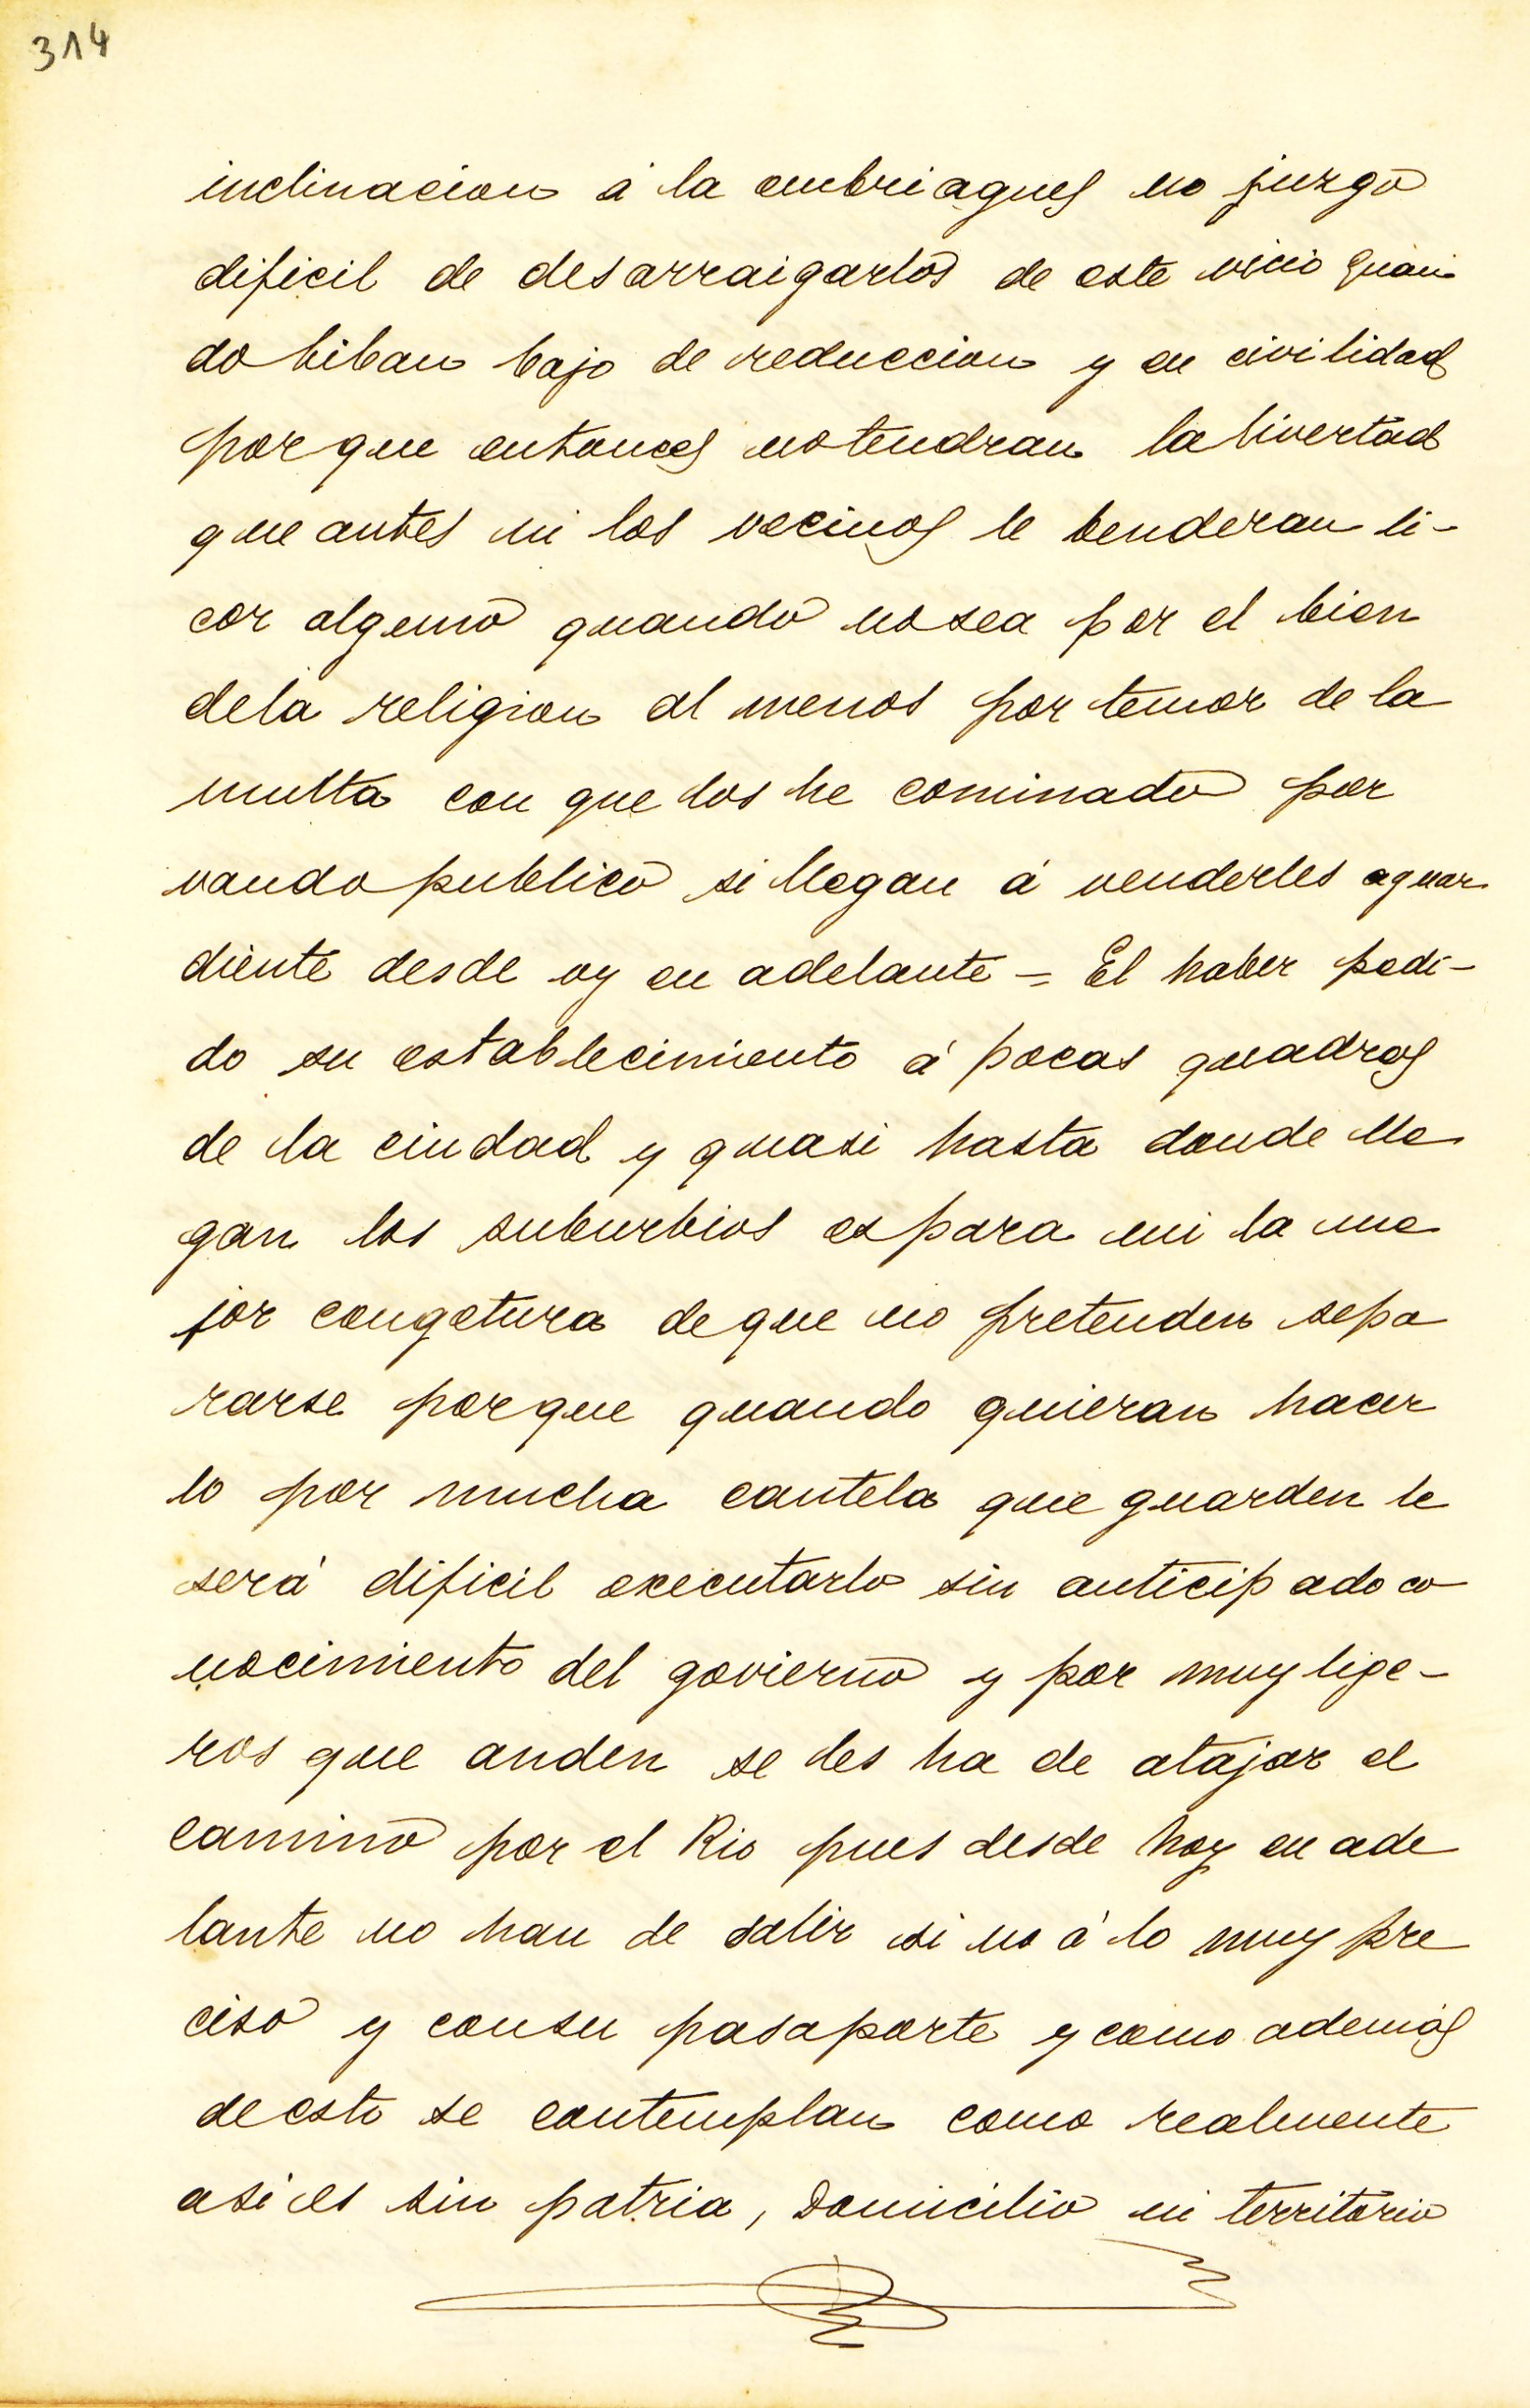 314
inclinacion á la embriagues no juzgo
dificil de desarraigarlos de este vicio quan
do biban bajo de reduccion y en civilidad
por que entonces no tendran la livertad
que antes ni los vecinos le benderan li-
cor alguno quando no sea por el bien
dela religion al menos por temor de la
multa con que los he cominado por
vando publico si llegan á venderles aguar
diente desde oy en adelante = El haber pedi-
do su establecimiento á pocas quadras
de la ciudad y quasi hasta donde lle
gan los suburbios es para mi la me
jor congetura de que no pretenden sepa
rarse porque quando quieran hacer
lo por mucha cautela que guarden le
será dificil executarlo sin anticipado co
nocimiento del govierno y por muy lige-
ros que anden se les ha de atajar el
camino por el Rio pues desde hoy en ade
lante no han de salir si no á lo muy pre
ciso y consu pasaporte y como además
de esto se contemplan como realmente
asi es sin patria, Domicilio ni territorio